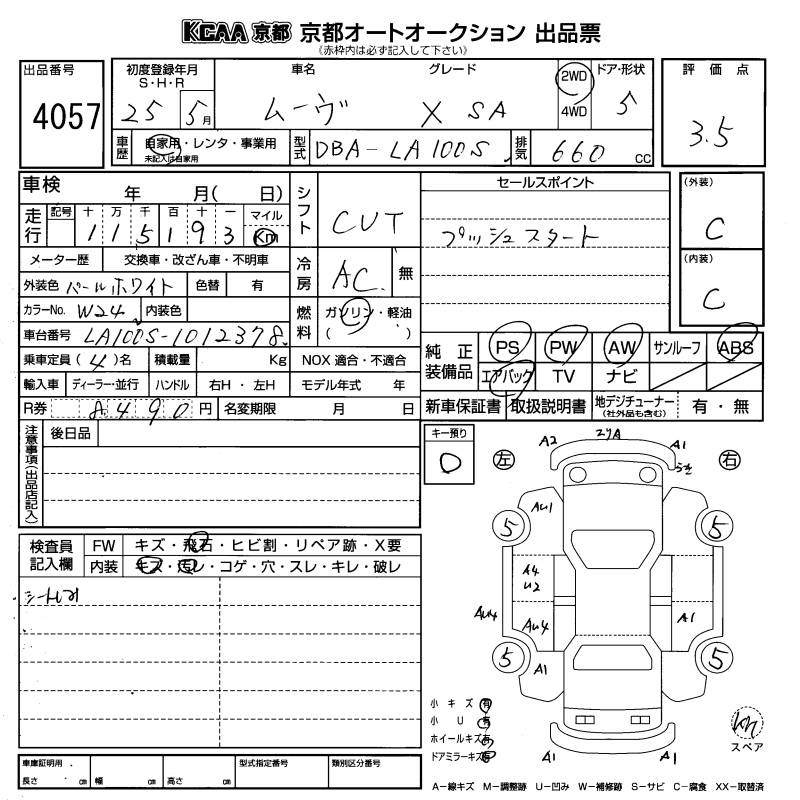 KCAA 京都 京都オートオークション 出品票
(赤枠内は必ず記入して下さい)
出品番号
4057
初度登録年月
S・H・R
25 5月
車名
ムーヴ
グレード
X SA
2WD
4WD
ドア・形状
5
評価点
3.5
車歴
自家用・レンタ・事業用
未記入は自家用
型式
DBA-LA100S
排気
660 CC
車検
年 月( 日)
走行
記号 十 万 千 百 十 一 マイル
1 1 5 1 9 3 Km
メーター歴
交換車・改ざん車・不明車
外装色
パールホワイト
色替
有
カラーNo.
W24
内装色
車台番号
LA100S-1012378
乗車定員 (4)名
積載量
Kg
NOX 適合・不適合
輸入車
ディーラー・並行
ハンドル
右H・左H
モデル年式 年
R券
8490円
名変期限 月 日
シフト
CVT
冷房
AC
無
燃料
ガソリン・軽油
( )
セールスポイント
プッシュスタート
(外装)
C
(内装)
C
純正装備品
PS PW AW サンルーフ ABS
エアバック TV ナビ
新車保証書
取扱説明書
地デジチューナー
(社外品も含む)
有・無
注意事項(出品店記入)
後日品
検査員記入欄
FW
キズ・飛石・ヒビ割・リペア跡・X要
内装
キズ・汚レ・コゲ・穴・スレ・キレ・破レ
キー預り
左
右
A2
A1
AU1
5
5
A4
U2
AU4
AU4
A1
5
5
A1
A1
A1
小キズ 有
小U 有
ホイールキズ有
ドアミラーキズ有
スペア
車庫証明用
長さ cm
幅 cm
高さ cm
型式指定番号
類別区分番号
A-線キズ M-調整跡 U-凹み W-補修跡 S-サビ C-腐食 XX-取替済